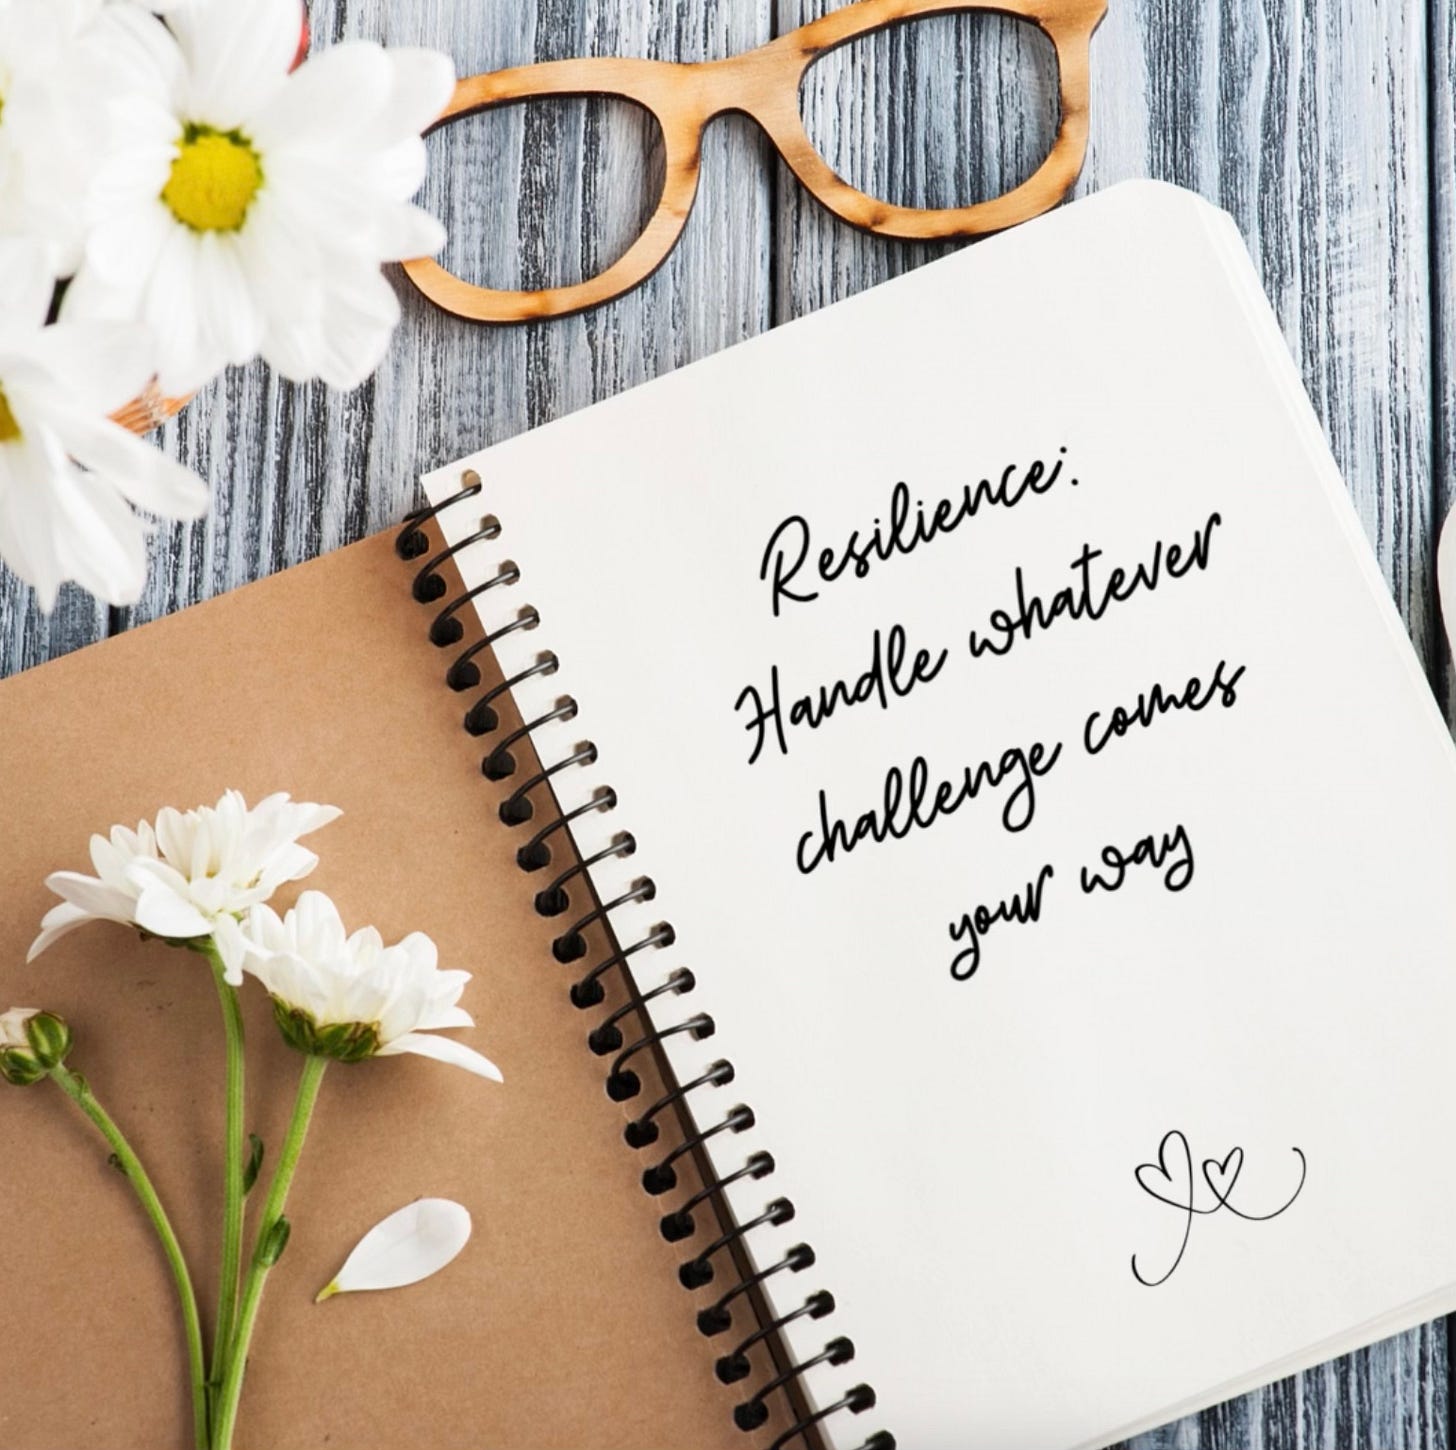 Resilience:
Handle whatever
challenge comes
your way